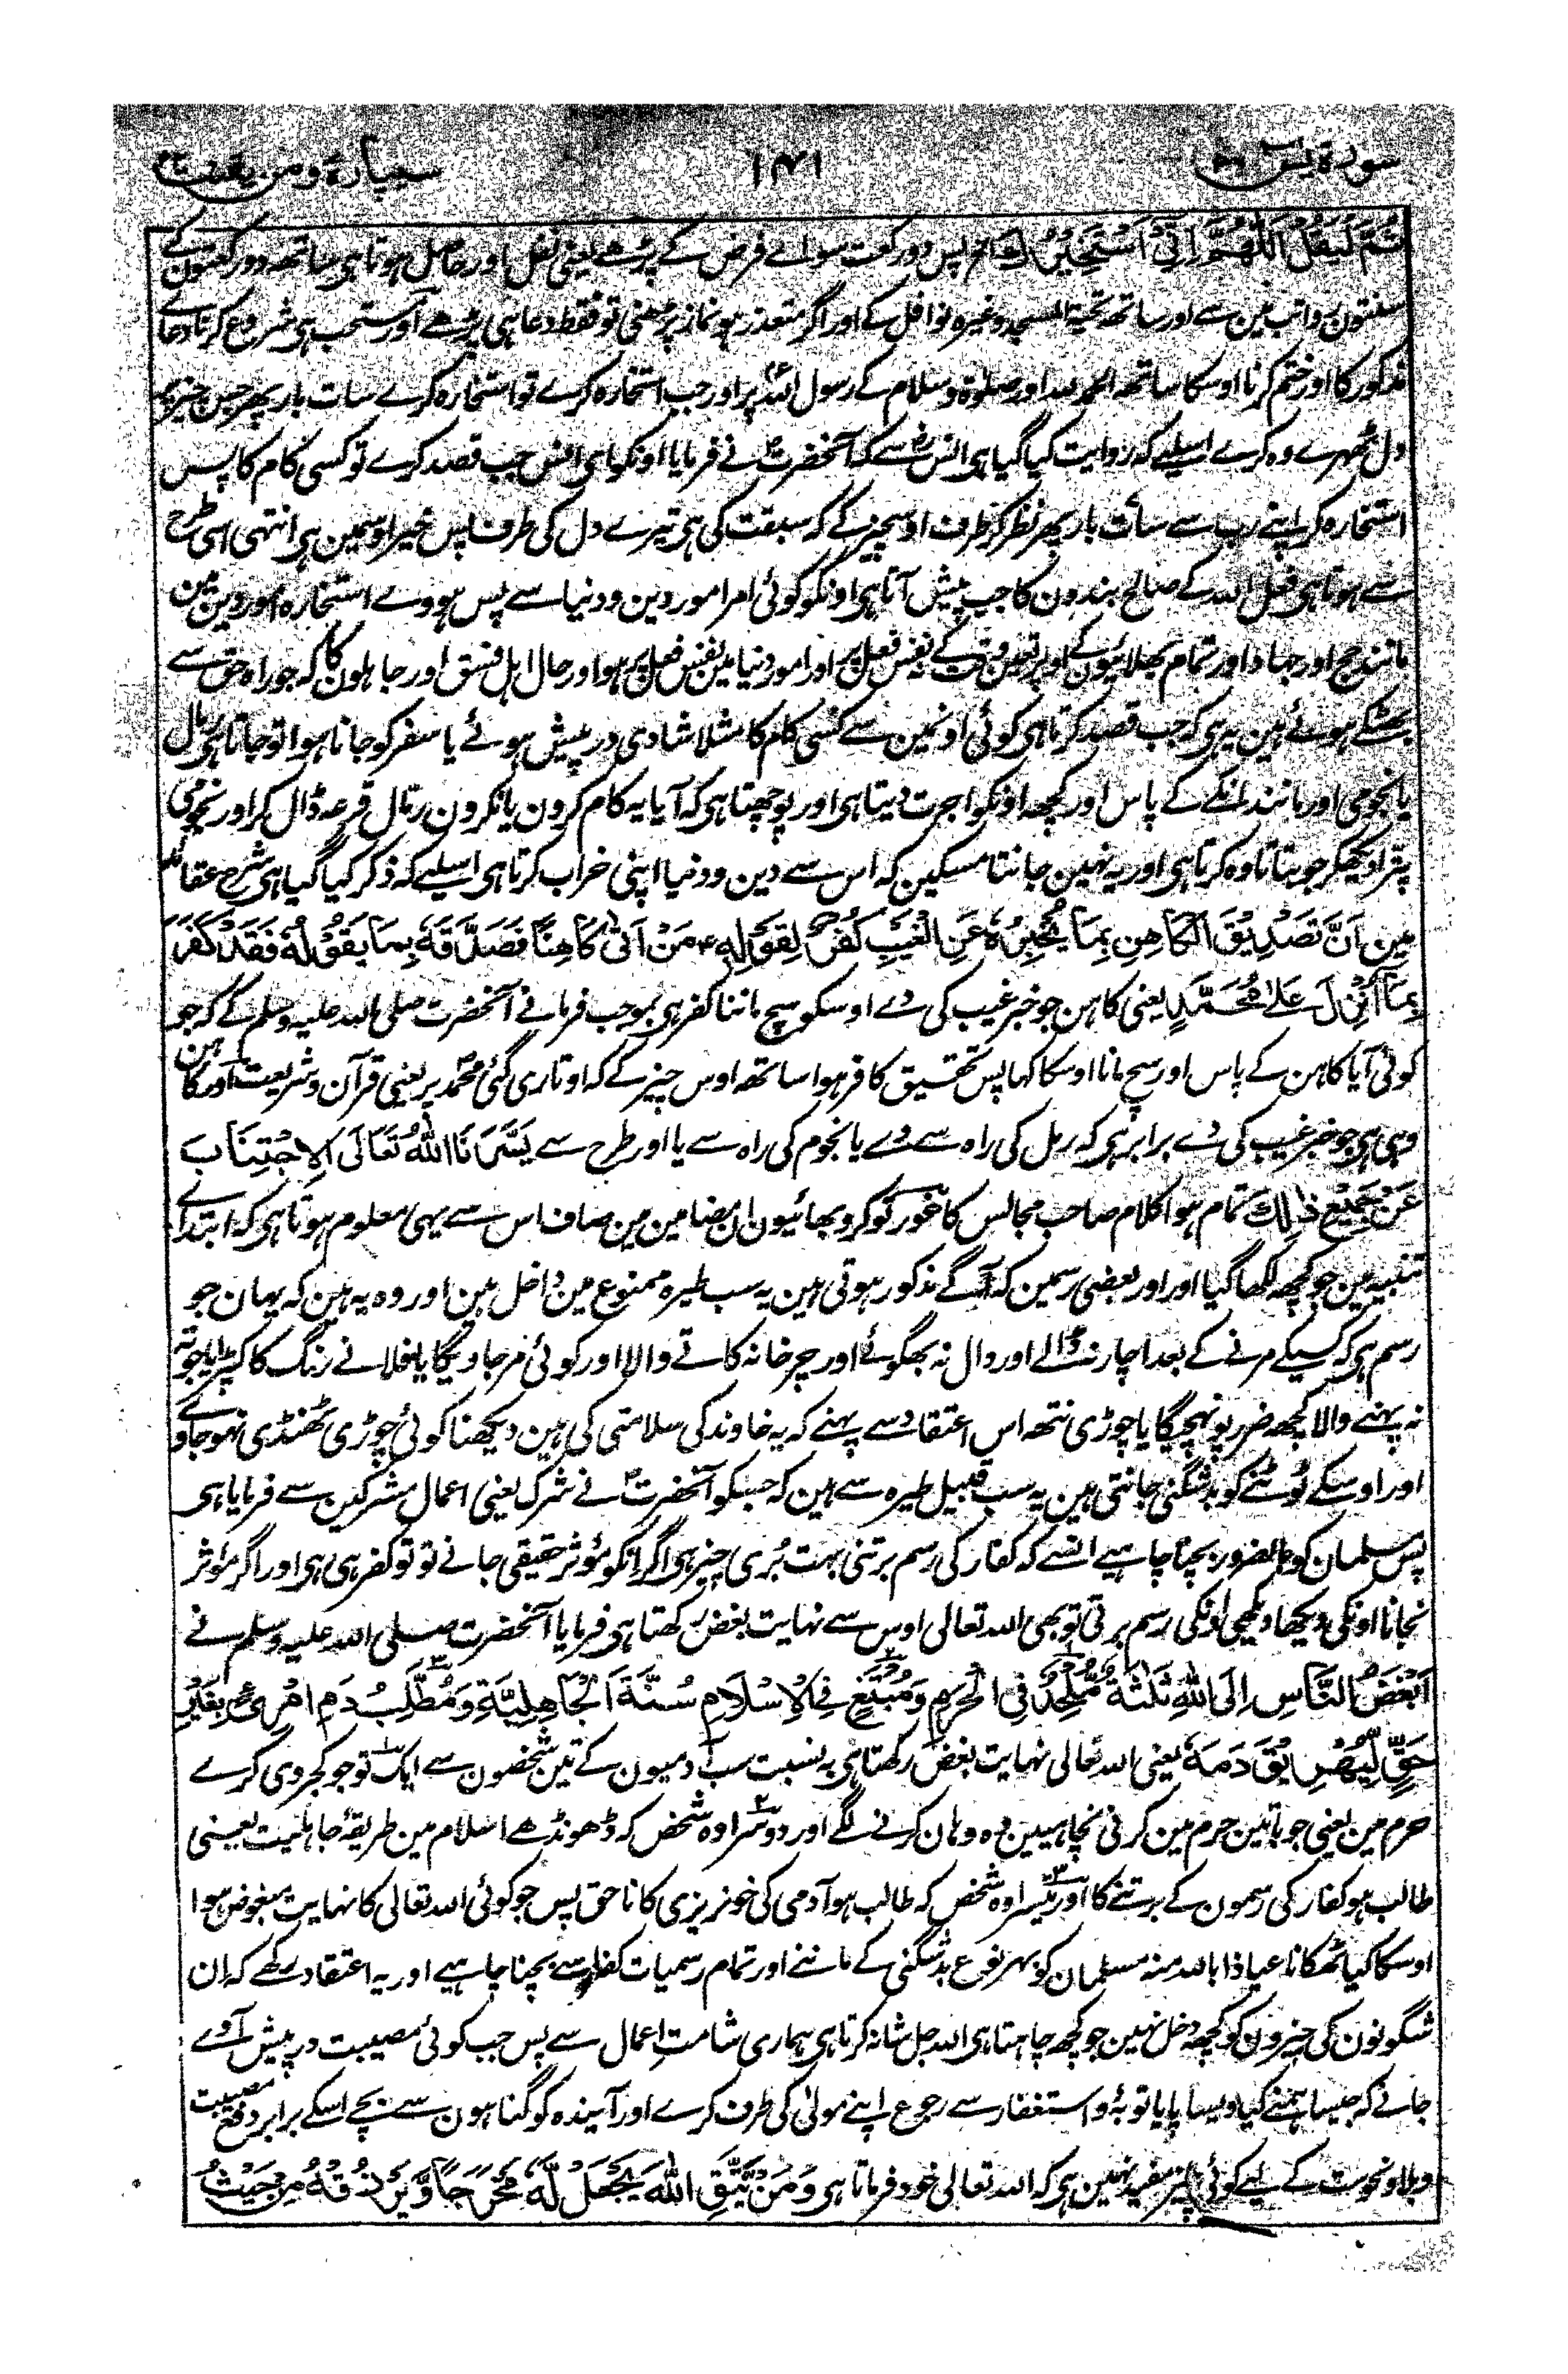 سورة يس ٣٦
١٤١
سیپارۂ ومن یقنت ٢٢
ثُمَّ لْيَقُلْ اَللّٰهُمَّ اِنِّيْ اَسْتَخِيْرُكَ الخ پس دو رکعت سواے فرض کے پڑھے یعنی نفل اور حاصل ہوتا ہی ساتھ دو رکعتون کے
سنتون رواتب مین سے اور ساتھ تحیۃ المسجد وغیرہ نوافل کے اور اگر متعذر ہو نماز پڑھنی تو فقط دعا ہی پڑھے اور مستحب ہی شروع کرنا دعاے
مذکور کا اور ختم کرنا اوسکا ساتھ الحمد للہ اور صلوۃ و سلام کے رسول اللہ پر اور جب استخارہ کرے تو استخارہ کرے سات بار پھر جس چیز پر
دل ٹھہرے وہ کرے اسلیے کہ روایت کیا گیا ہی انس رض سے کہ آنحضرت ص نے فرمایا اونکو ای انس جب قصد کرے تو کسی کام کا پس
استخارہ کر اپنے رب سے سات بار پھر نظر کر طرف اوسچیز کے کہ سبقت کی ہی تیرے دل کی طرف پس خیر اوسمین ہی انتہی اسی طرح
سے ہوتا ہی فعل اللہ کے صالح بندون کا جب پیش آتا ہی اونکو کوئی امر امور دین و دنیا سے پس ہووے استخارہ امور دین مین
مانند حج اور جہاد اور تمام بھلائیون کے اوپر تعین وقت کے نہ نفس فعل پر اور امور دنیا مین نفس فعل پر ہو اور حال اہل فسق اور جاہلون کا کہ جو راہ حق سے
بھٹکے ہوئے ہین یہ ہی کہ جب قصد کرتا ہی کوئی اونمین سے کسی کام کا مثلا شادی درپیش ہوئے یا سفر کو جانا ہوا تو جاتا ہی رمال
یا نجومی اور مانند انکے کے پاس اور کچھ اونکو اجرت دیتا ہی اور پوچھتا ہی کہ آیا یہ کام کرون یا نکرون رمال قرعہ ڈال کر اور نجومی
پترا دیکھکر جو بتاتا وہ کرتا ہی اور یہ نہین جانتا مسکین کہ اس سے دین و دنیا اپنی خراب کرتا ہی اسلیے کہ ذکر کیا گیا ہی شرح عقائد
مِیں اَنَّ تَصْدِیْقَ الْکَاهِنِ بِمَا یُخْبِرُهٗ عَنِ الْغَیْبِ کُفْرٌ لِقَوْلِهٖ ع مَنْ اَتٰی کَاهِنًا فَصَدَّقَهٗ بِمَا یَقُوْلُهٗ فَقَدْ کَفَرَ
بِمَا اُنْزِلَ عَلٰی مُحَمَّدٍ یعنی کاہن جو خبر غیب کی دے اوسکو سچ ماننا کفر ہی بموجب فرمانے آنحضرت صلی اللہ علیہ وسلم کے کہ جو
کوئی آیا کاہن کے پاس اور سچ مانا اوسکا کہا پس تحقیق کافر ہوا ساتھ اوس چیز کے کہ اوتاری گئی محمدؐ پر یعنی قرآن و شریعت اور کاہن
وہی ہی جو خبر غیب کی دے برابر ہی کہ رمل کی راہ سے دے یا نجوم کی راہ سے یا اور طرح سے یَسَّرَ نَا اللّٰهُ تَعَالٰی الْاِجْتِنَابَ
عَنْ جَمِیْعِ ذٰلِكَ تمام ہوا کلام صاحب مجالس کا غور تو کرو بھائیون ان مضامین مین صاف اس سے یہی معلوم ہوتا ہی کہ ابتداے
تنبیہ مین جو کچھ لکھا گیا اور اور بعضی رسمین کہ آگے مذکور ہوتی ہین یہ سب طیرہ ممنوع مین داخل ہین اور وہ یہ ہین کہ یہان جو
رسم ہی کہ کسیکے مرنے کے بعد اچار نہ ڈالے اور دال نہ بھگوئے اور چرخا نہ کاتے والا اور کوئی مرجاویگا یا فلانے رنگ کا کپڑا یا جوتہ
نہ پہنے والا کچھ ضرر پونہچیگا یا چوڑی نتھ اس اعتقاد سے پہنے کہ یہ خاوند کی سلامتی کی ہین دیکھنا کوئی چوڑی ٹھنڈی نہوجاوے
اور اوسکے ٹوٹنے کو بدشگنی جانتی ہین یہ سب قبیل طیرہ سے ہین کہ جسکو آنحضرت ص نے شرک یعنی اعمال مشرکین سے فرمایا ہی
پس مسلمان کو بالضرور بچنا چاہیے انسے کہ کفار کی رسم برتنی بہت بُری چیز ہی اگر انکو مؤثر حقیقی جانے تو تو کفر ہی ہی اور اگر مؤثر
نجانا اونکی دیکھا دیکھی اونکی رسم برتی تو بھی اللہ تعالی اوس سے نہایت بغض رکھتا ہی فرمایا آنحضرت صلی اللہ علیہ وسلم نے
اَبْغَضُ النَّاسِ اِلَی اللّٰهِ ثَلٰثَةٌ مُّلْحِدٌ فِی الْحَرَمِ وَمُبْتَغٍ فِی الْاِسْلَامِ سُنَّةَ الْجَاهِلِیَّةِ وَمُطَّلِبُ دَمِ امْرِئٍ بِغَیْرِ
حَقٍّ لِّیُهْرِیْقَ دَمَهٗ یعنی اللہ تعالی نہایت بغض رکھتا ہی بہ نسبت سب آدمیون کے تین شخصون سے ایک تو جو کجروی کرے
حرم مین یعنی جو باتین حرم مین کرنی نچاہییں وہ وہان کرنے لگے اور دوسرا وہ شخص کہ ڈھونڈھے اسلام مین طریقۂ جاہلیت یعنی
طالب ہو کفار کی رسمون کے برتنے کا اور تیسرا وہ شخص کہ طالب ہو آدمی کی خونریزی کا ناحق پس جو کوئی اللہ تعالی کا نہایت مبغوض ہوا
اوسکا کیا ٹھکانا عیاذا باللہ منہ مسلمان کو بہر نوع بدشگنی کے ماننے اور تمام رسمیات کفار سے بچنا چاہیے اور یہ اعتقاد رکھے کہ ان
شگونون کی چیزون کو کچھ دخل نہین جو کچھ چاہتا ہی اللہ جل شانہ کرتا ہی ہماری شامتِ اعمال سے پس جب کوئی مصیبت درپیش آوے
جانے کہ جیسا ہمنے کیا ویسا پایا توبہ و استغفار سے رجوع اپنے مولیٰ کی طرف کرے اور آیندہ کو گناہون سے بچے اسکے برابر دفع مصیبت
وبلا و نحوست کے لیے کوئی چیز مفید نہین ہی کہ اللہ تعالی خود فرماتا ہی وَمَنْ یَّتَّقِ اللّٰهَ یَجْعَلْ لَّهٗ مَخْرَجًا وَّیَرْزُقْهُ مِنْ حَیْثُ